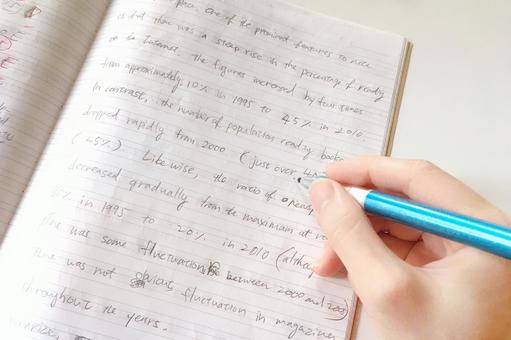 place. One of the prominent features to note
is that there was a steep rise in the percentage of ready
on the Internet. The figures increased by four times
from approximately 10% in 1995 to 45% in 2010.
In contrast, the number of population ready books
dropped rapidly from 2000 (just over
(45%). Likewise, the ratio of
decreased gradually from the maximum at
in 1995 to 20% in 2010 (althou
was some fluctuation between 2000 and 2005)
was not obvious fluctuation in magazines
throughout the years.